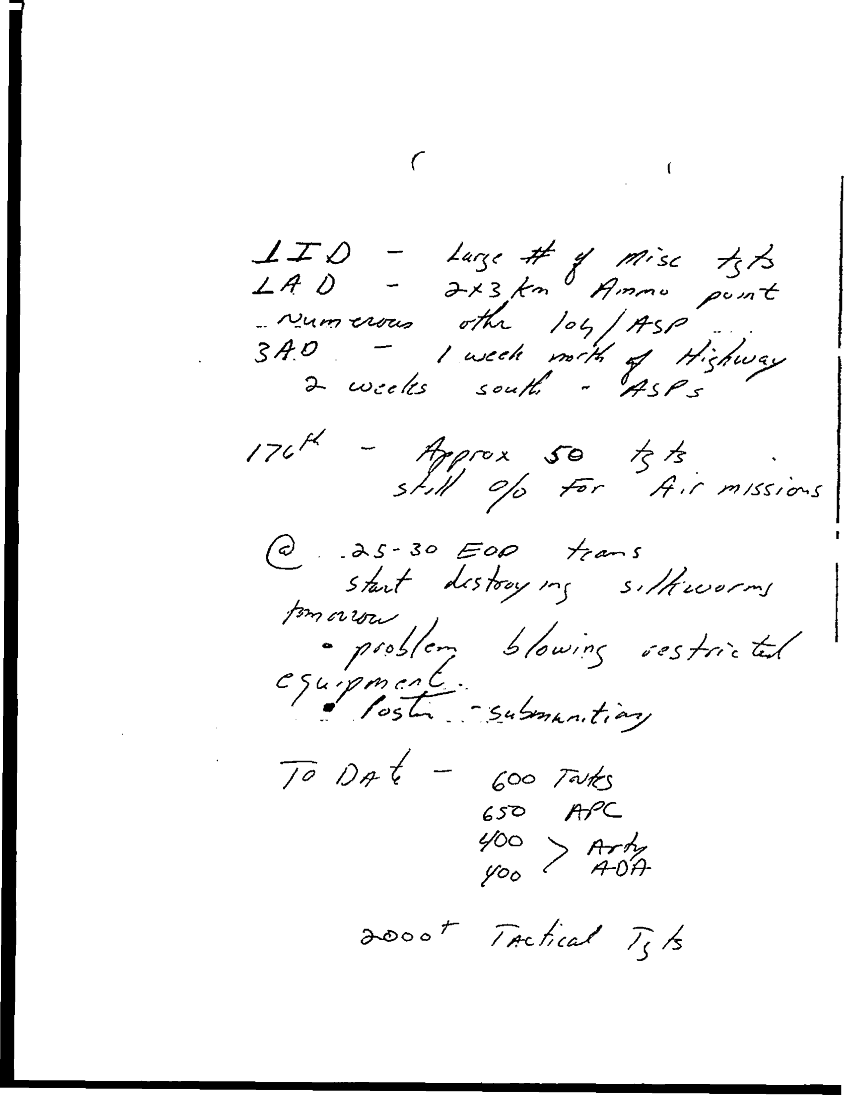 1ID - Large # of Misc tgts
1AD - 2x3 km Ammo point
numerous othr log/ASP
3AD - 1 week north of Highway
2 weeks south - ASPs
176th - Approx 50 tgts
still o/o For Air missions
@ 25-30 EOD teams
start destroying silkworms
tomorrow
• problem blowing restricted
equipment.
• - submunitions
To DAte - 600 Tanks
650 APC
400 > Arty
400 ADA
2000+ TActical Tgts